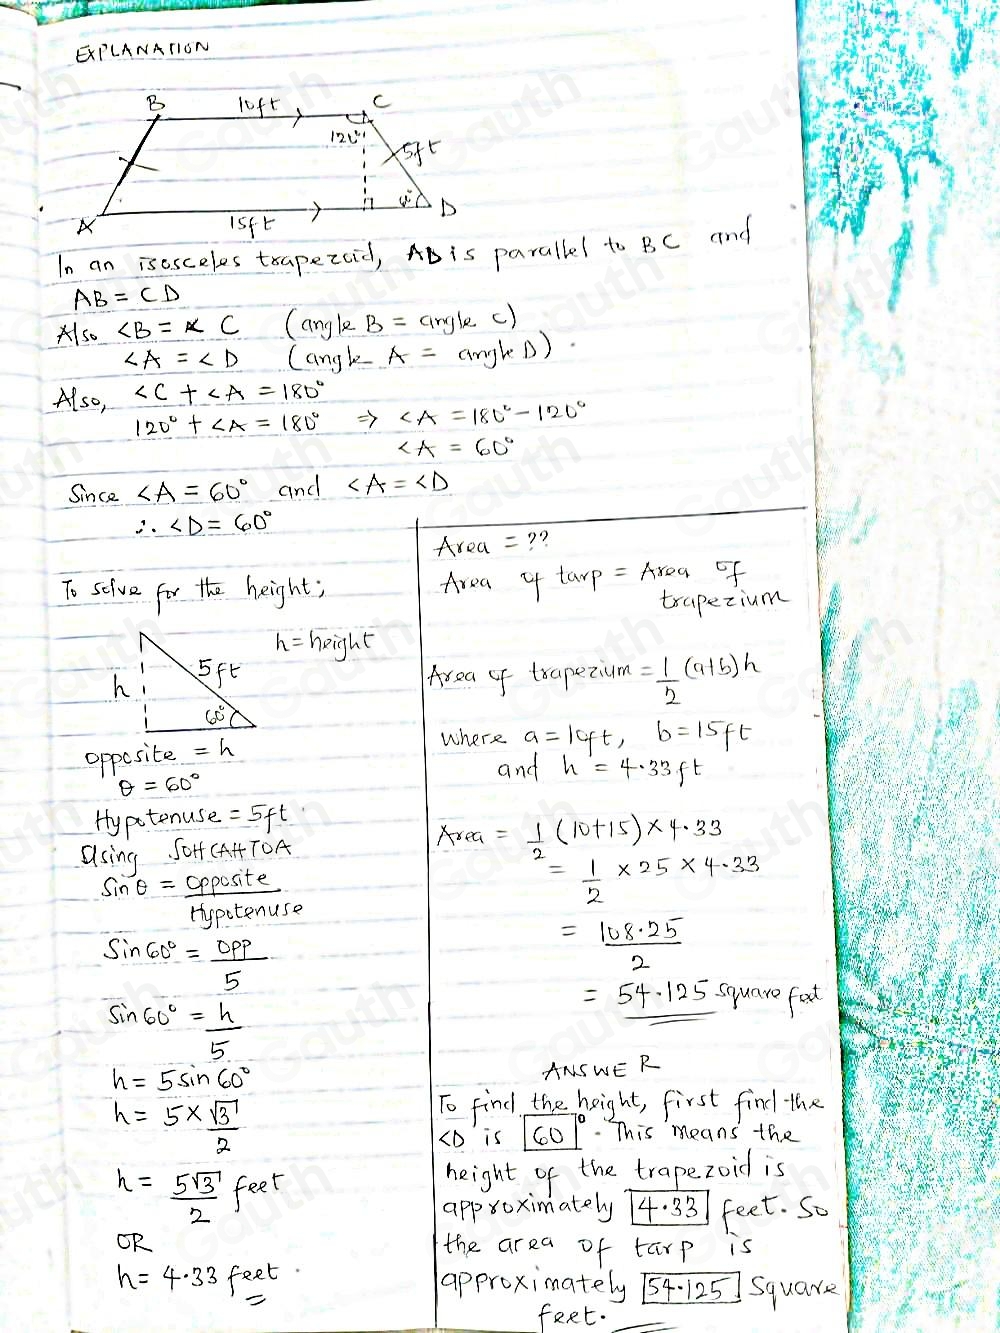 EXPLANATION
B 10ft C
120°
5ft
A 15ft D
In an isosceles trapezoid, AD is parallel to BC and
AB = CD
Also <B = < C (angle B = angle C)
<A = <D (angle A = angle D).
Also, <C + <A = 180°
120° + <A = 180° => <A = 180° - 120°
<A = 60°
Since <A = 60° and <A = <D
∴ <D = 60°
To solve for the height;
h = height
5ft
h
60°
opposite = h
θ = 60°
Hypotenuse = 5ft
Using SOHCAHTOA
Sin θ = Opposite / Hypotenuse
Sin 60° = OPP / 5
Sin 60° = h / 5
h = 5 sin 60°
h = 5 × √3 / 2
h = 5√3 / 2 feet
OR
h = 4.33 feet.
Area = ??
Area of tarp = Area of
trapezium
Area of trapezium = 1/2 (a+b)h
where a = 10ft, b = 15ft
and h = 4.33 ft
Area = 1/2 (10+15) × 4.33
= 1/2 × 25 × 4.33
= 108.25 / 2
= 54.125 square feet
ANSWER
To find the height, first find the
<D is 60°. This means the
height of the trapezoid is
approximately 4.33 feet. So
the area of tarp is
approximately 54.125 square
feet.
Gauth